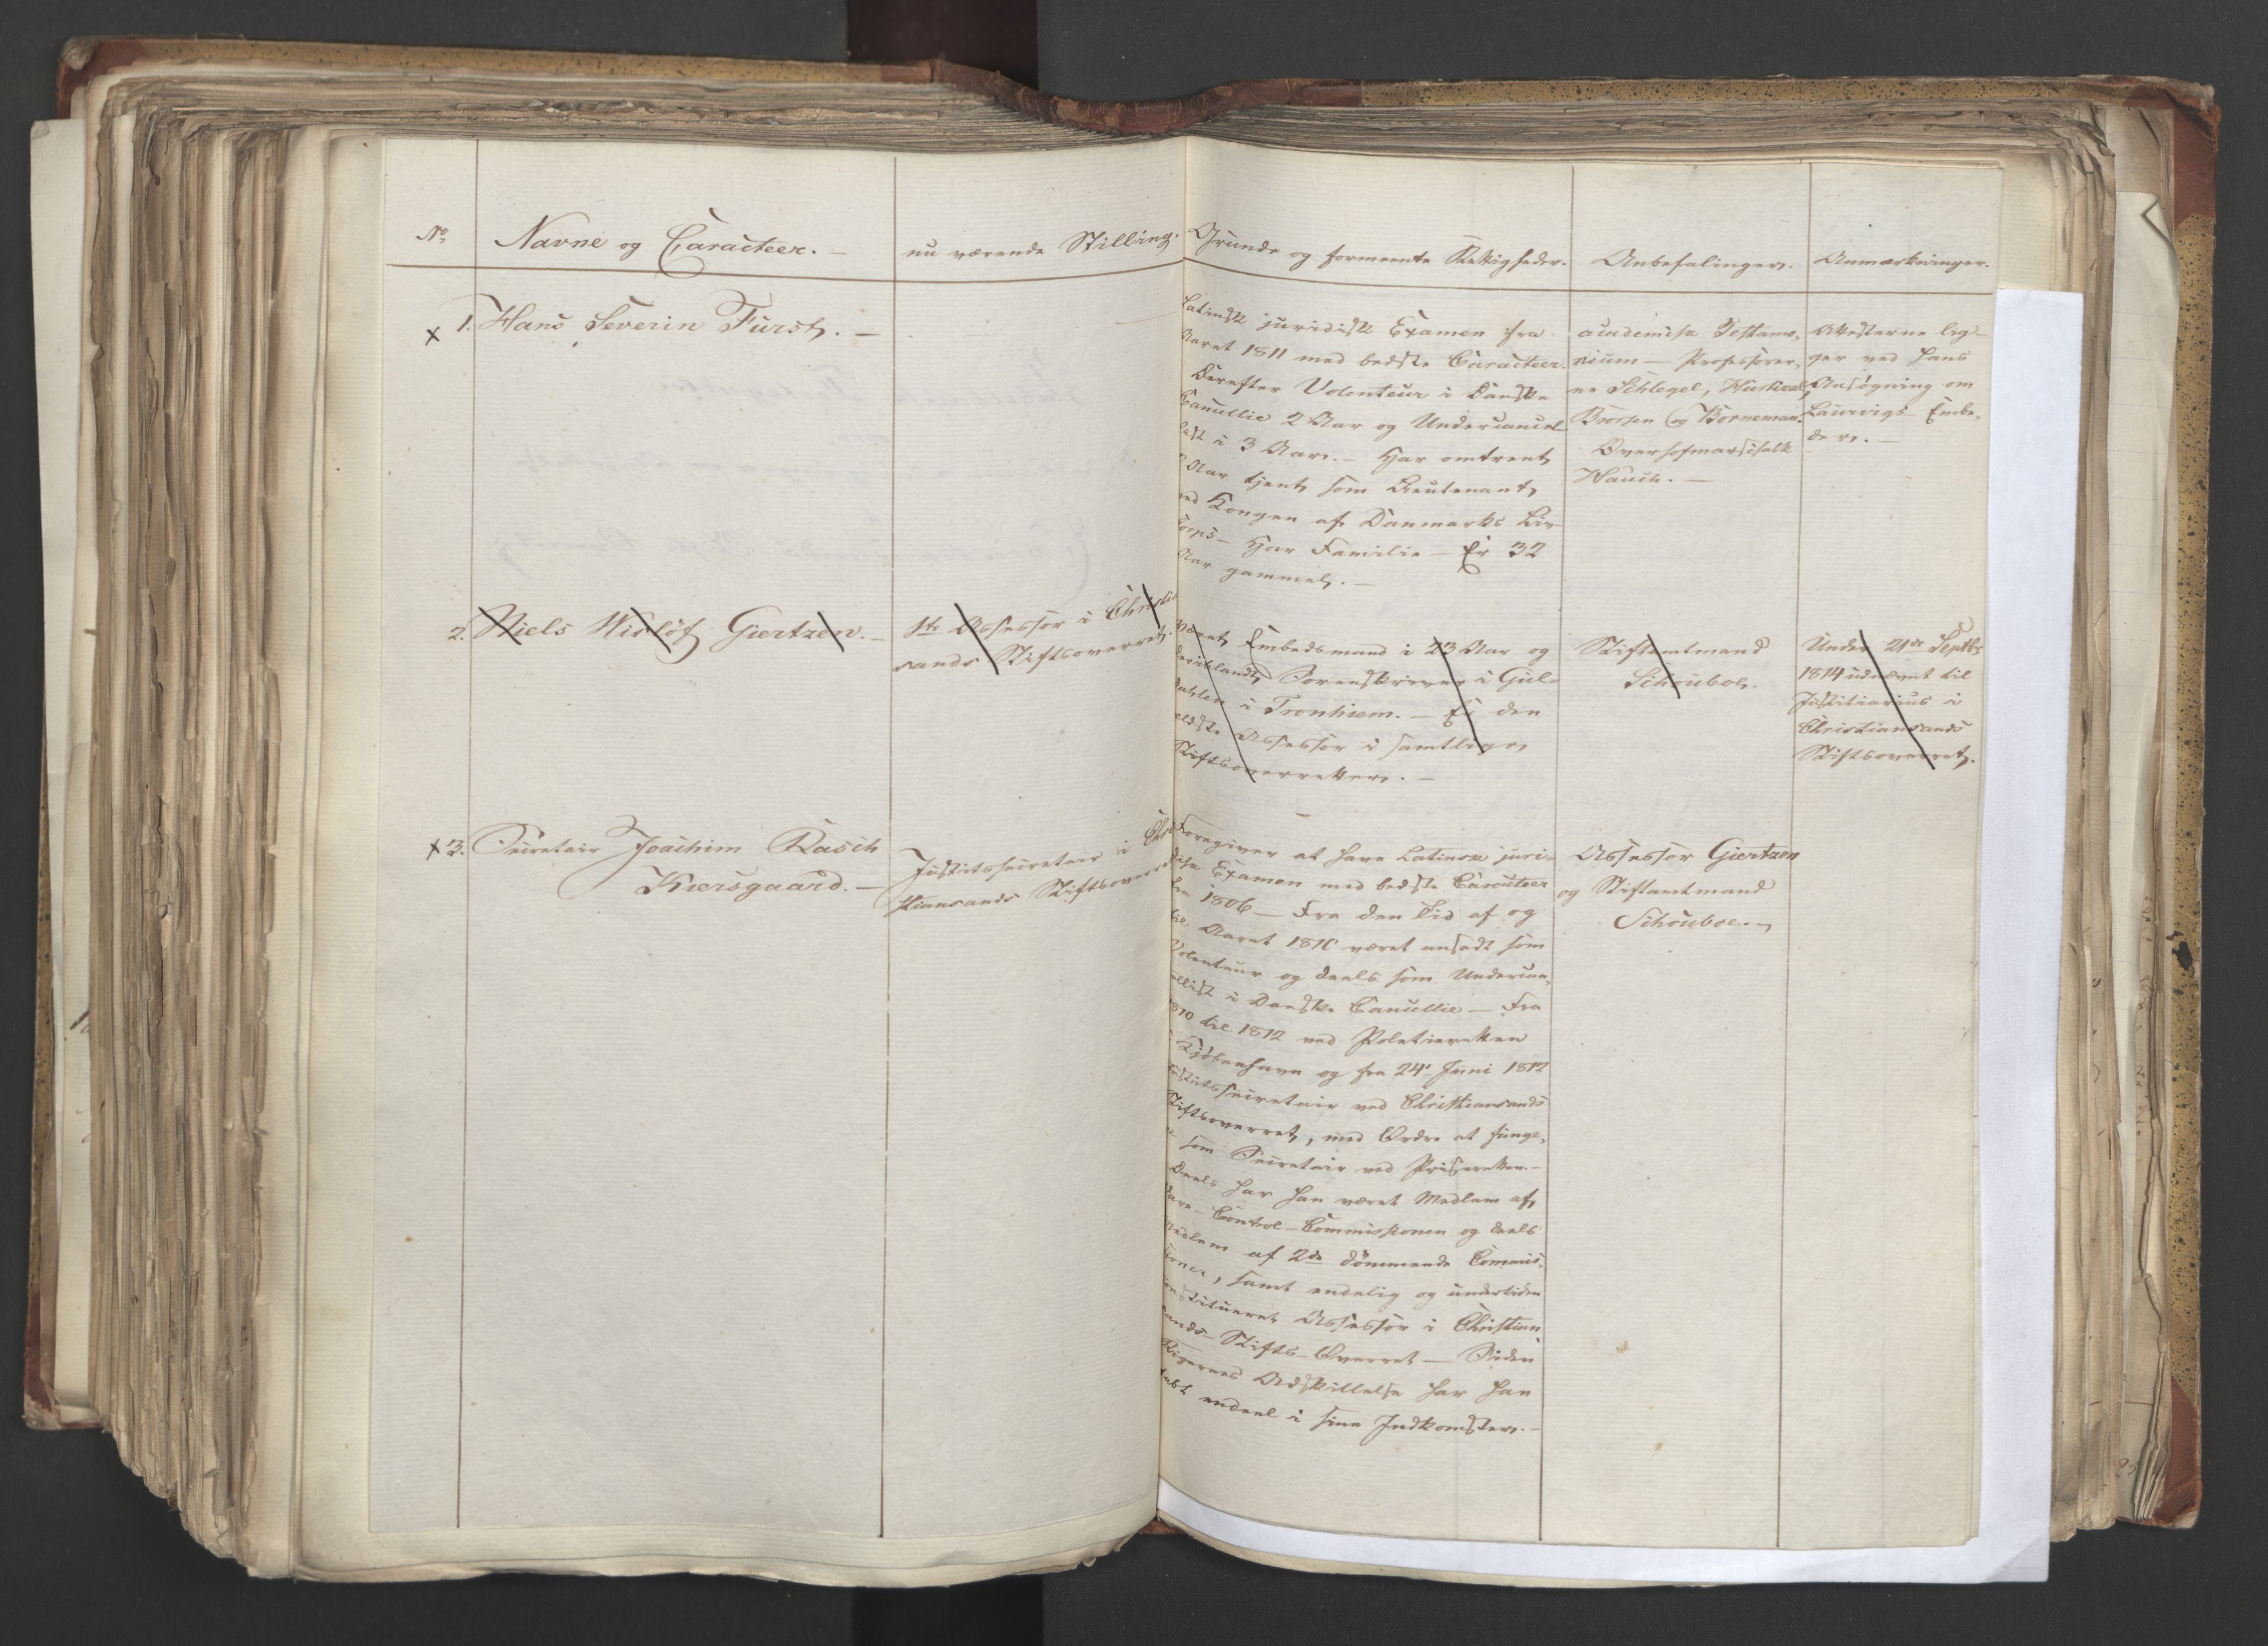 No. Navne og Caracteer. — nu værende Stilling. Grunde og formeente Rettigheder. Anbefalinger. Anmærkninger.
x 1. Hans Severin Fürst. —
Latinsk juridisk Examen fra
Aaret 1811 med bedste Caracteer.
Derefter Volonteur i Danske
Cancellie 2 Aar og Undercancel
list i 3 Aar. — Har omtrent
Aar tjent som Lieutenant
ved Kongen af Danmarks Liv
Corps — Har Familie — Er 32
Aar gammel. —
academisk Testamo-
nium — Professorer-
ne Schlegel, Hurtigkarl,
Brorson og Bornemann.
Overhofmarschalk
Hauch. —
Attesterne lig-
ger ved hans
Ansøgning om
Laurvigs Embe-
der. —
2. Niels Wisløf Giertzen. —
1ste Assessor i Christian
sands Stiftsoverret.
Været Embedsmand i 23 Aar og
deriblandt Sorenskriver i Gul-
dahlen i Tronhiem. — Er den
ældste Assessor i samtlige
Stiftsoverretter. —
Stiftamtmand
Schouboe.
Under 21de Septbr
1814 udnævnt til
Justitiarius i
Christiansands
Stiftsoverret.
x 3. Secretair Joachim Rasch
Kiersgaard. —
Justitssecretair i Chri
stiansands Stiftsoverret
Foregiver at have Latinsk juri-
disk Examen med bedste Caracteer
fra 1806 — Fra den Tid af og
til Aaret 1810 været ansadt som
Volonteur og deels som Undercan-
cellist i Danske Cancellie — Fra
1810 til 1812 ved Politieretten
i Kjøbenhavn og fra 24. Juni 1812
Justitssecretair ved Christiansands
Stiftsoverret, med Ordre at funge-
re som Secretair ved Priseretten. —
Deels har han været Medlem af
Vare-Control-Commissionen og deels
Medlem af 2de dömmende Commis-
sioner, samt endelig og undertiden
constitueret Assessor i Christian
sands Stifts-Overret — Siden
Rigernes Adskillelse har han
tabt endeel i sine Indkomster. —
Assessor Giertzen
og Stiftamtmand
Schouboe. —